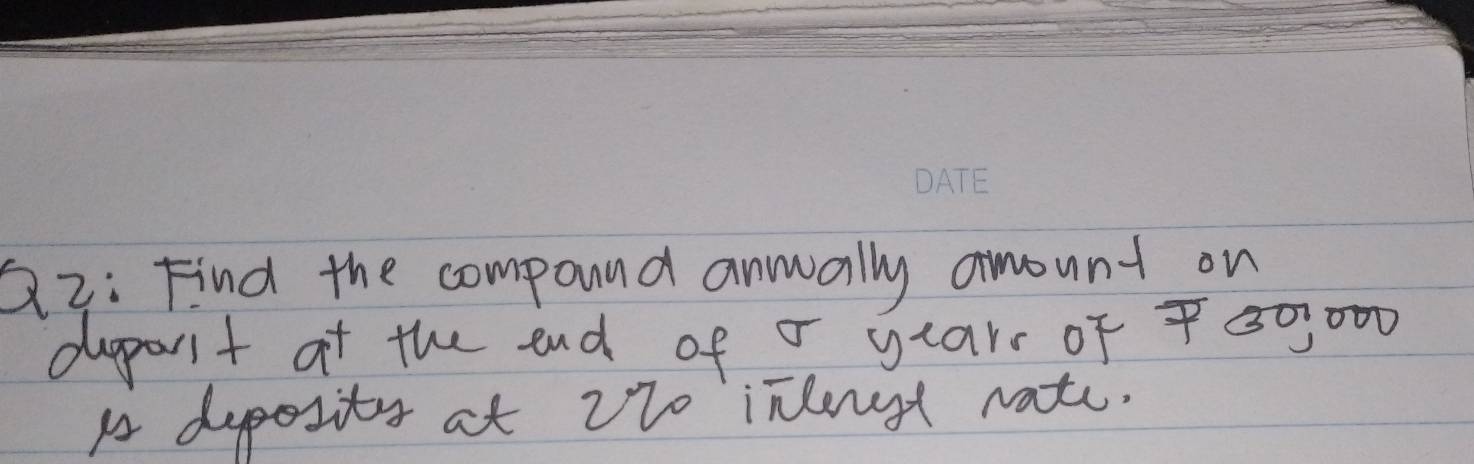 DATE
Q2: Find the compound annually amount on
deposit at the end of 5 years of ₱ 30,000
is deposity at 2% interest rate.